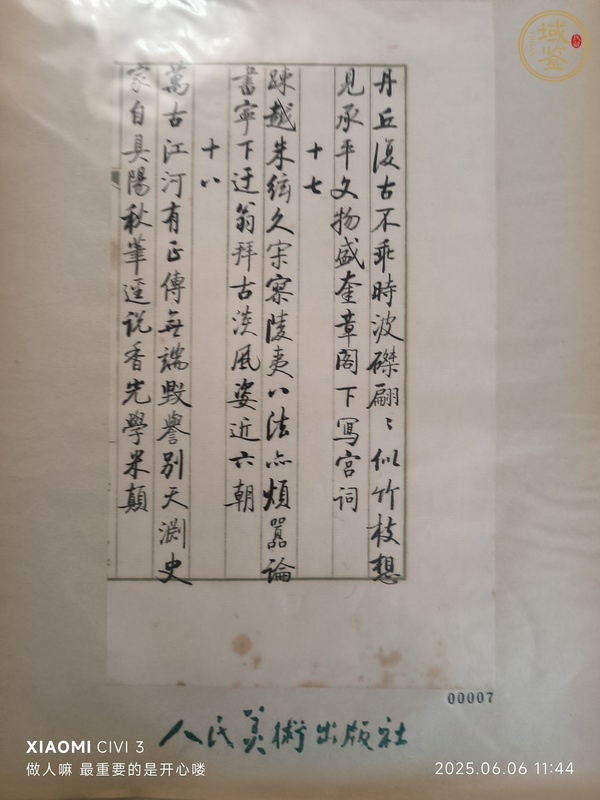 丹丘復古不乖時波磔翩〻似竹枝想
見承平文物盛奎章閣下寫宮詞
十七
疎越朱絃久寂寥陵夷八法亦煩囂論
書寧下迂翁拜古淡風姿近六朝
十八
萬古江河有正傳無端毀譽別天淵史
家自具陽秋筆逕說香光學米顛
00007
人民美術出版社
域鉴
XIAOMI CIVI 3
做人嘛 最重要的是开心喽
2025.06.06 11:44